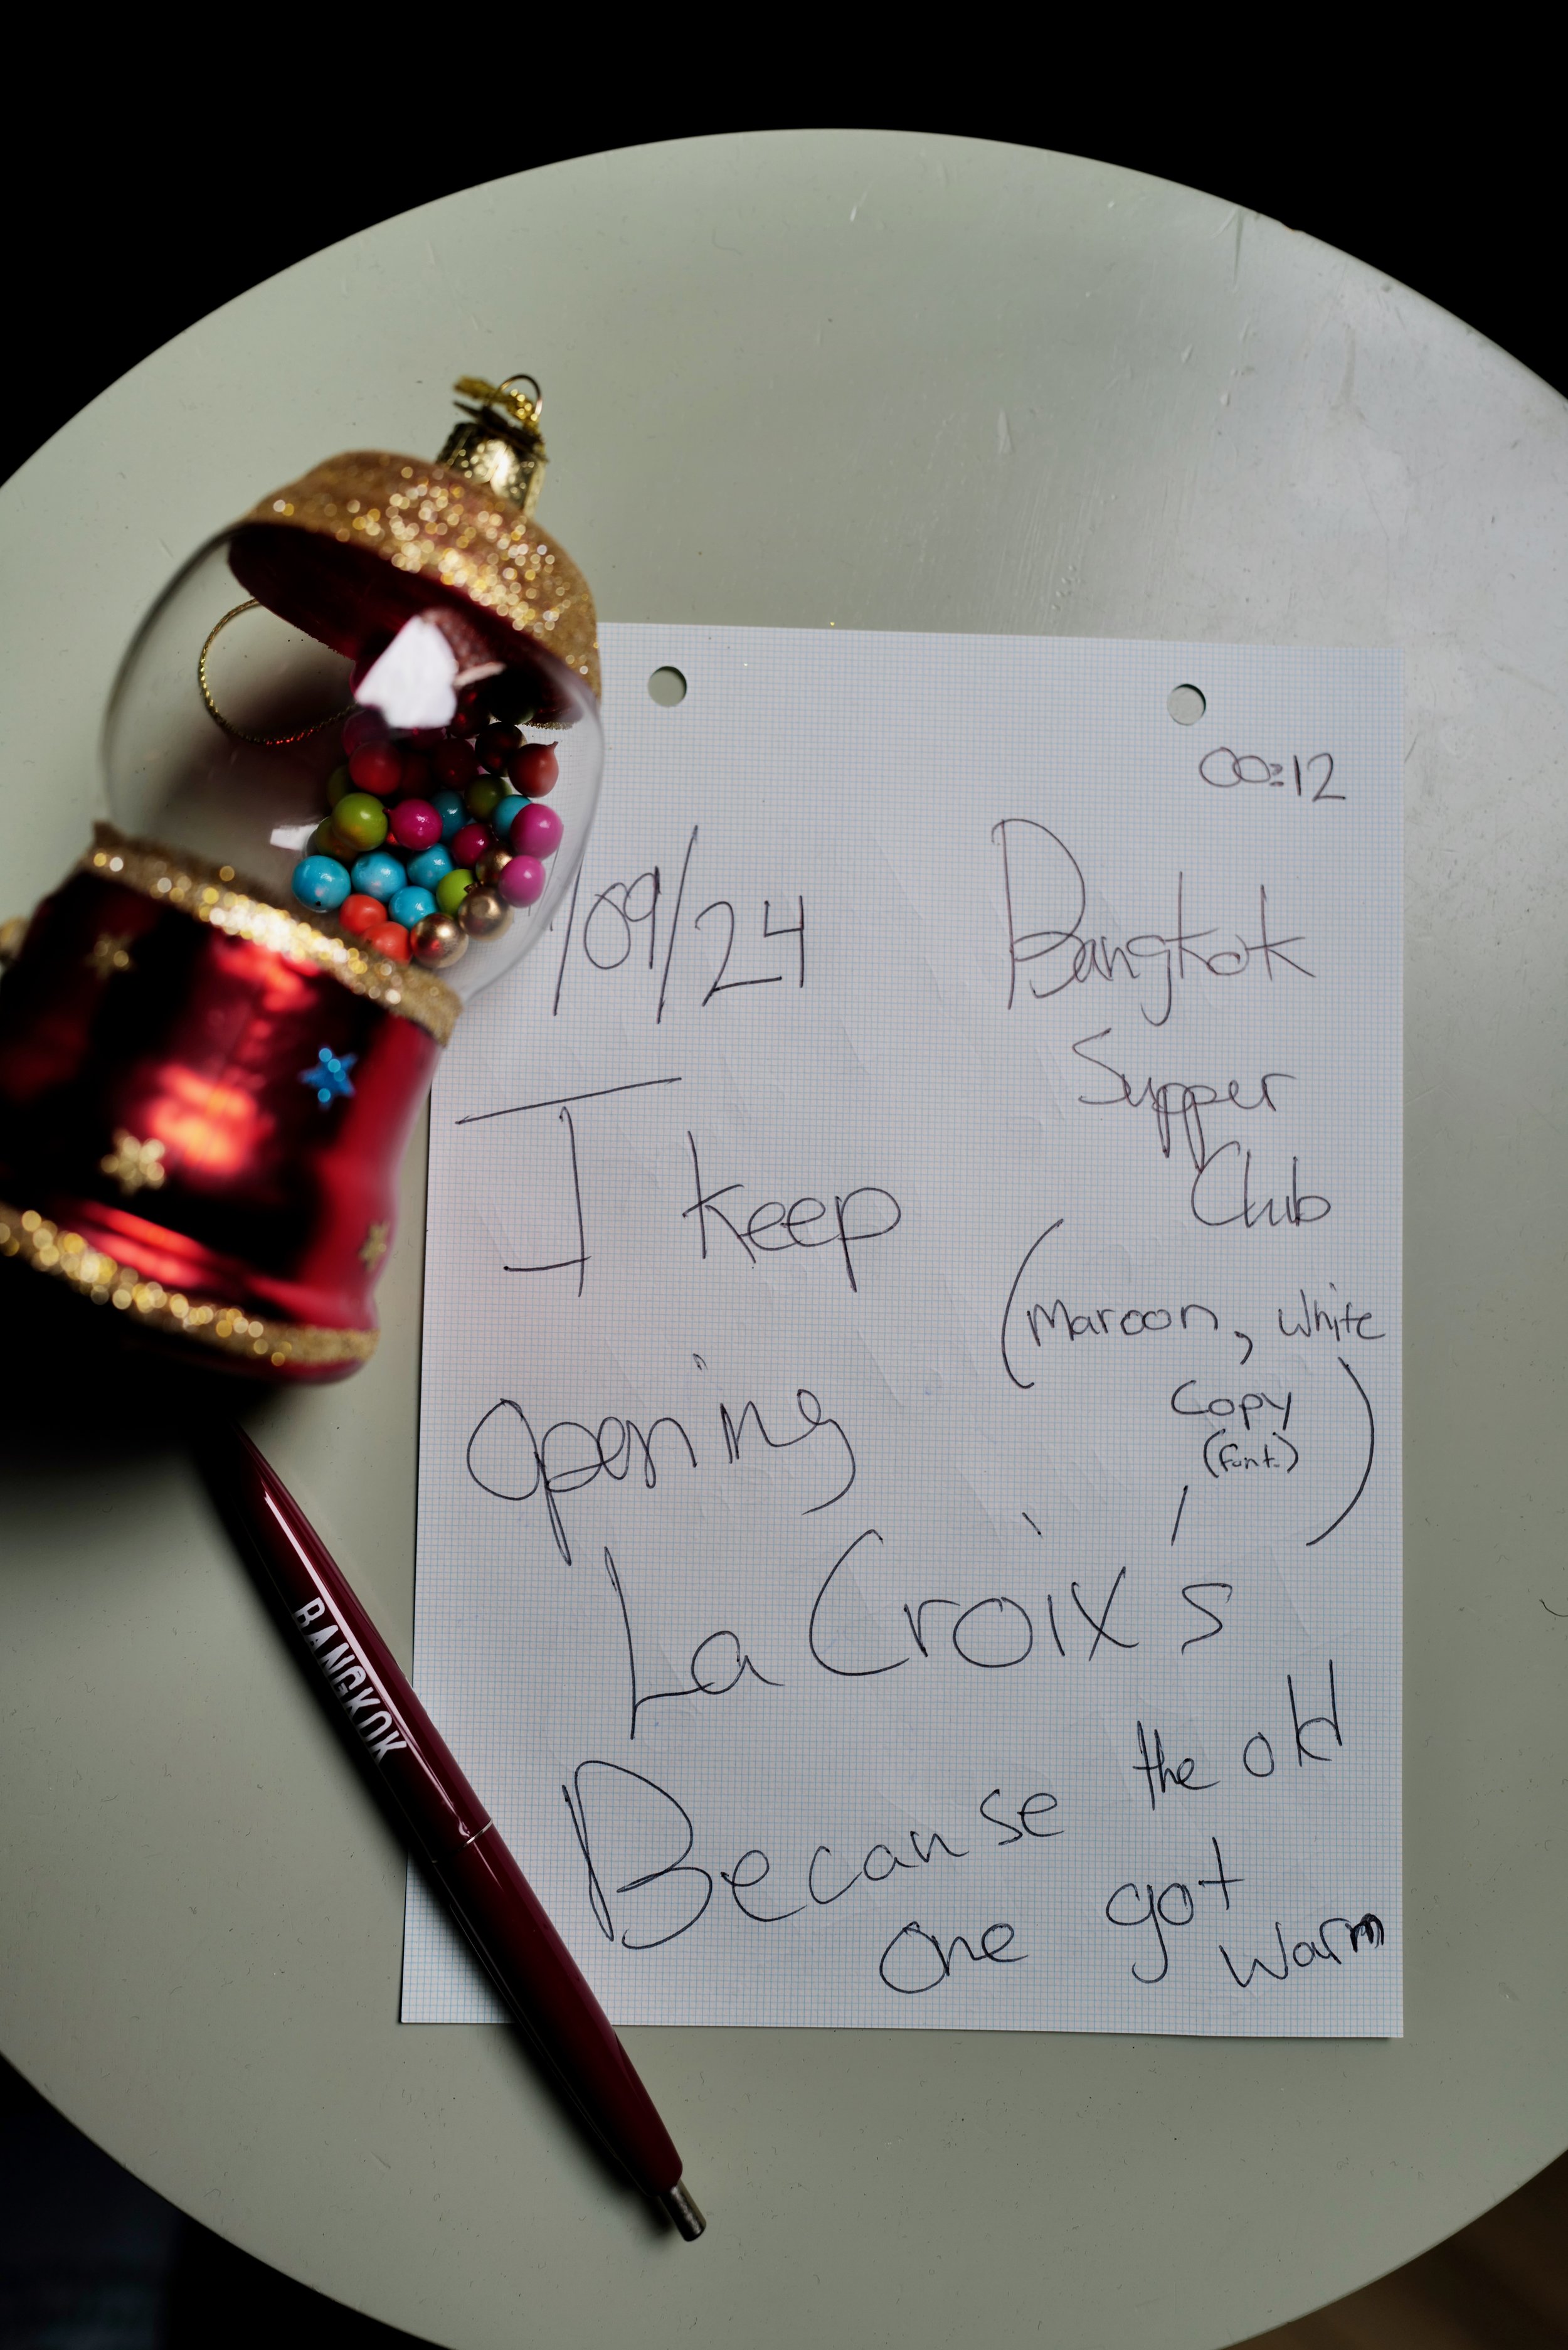 00:12
/09/24
Bangkok
Supper
Club
I keep
(Maroon, White
Copy
(font)
)
opening
La Croix's
Because the old
one got
warm
BANGKOK